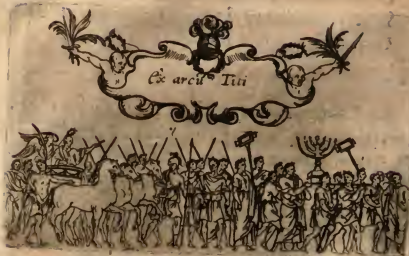 Ex arcu Titi